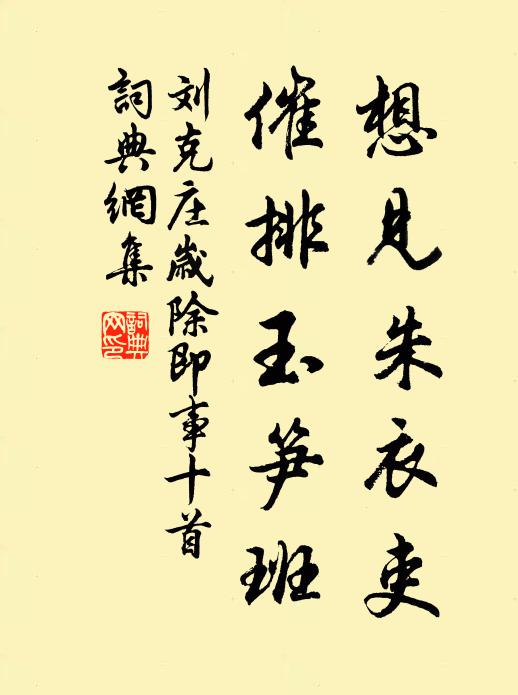 想見朱衣吏
催排玉笋班
刘克庄歲除即事十首
詞典網集
詞典網印